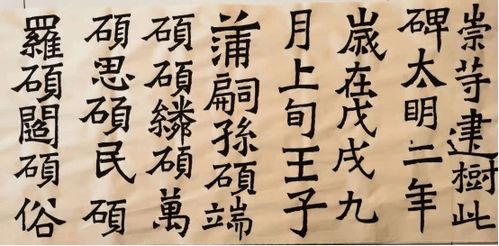 崇䓁建樹此
碑太明二年
歲在戊戌九
月上旬壬子
蒲嗣孫碩端
碩碩繗碩萬
碩思碩民碩
羅碩閻碩俗